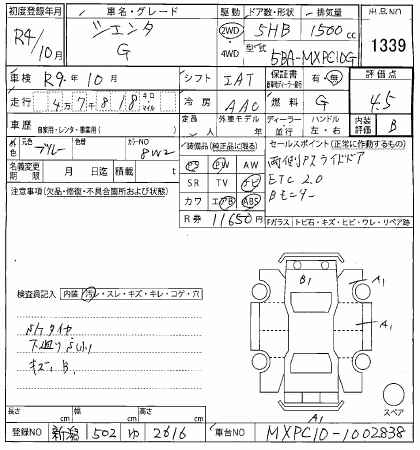 初度登録年月 車名・グレード 駆動 ドア数・形状 排気量 出品NO
R4/10月 シエンタ G 2WD・4WD 5HB 1500cc 1339
型式 5BA-MXPC10G
車検 R9年10月 シフト IAT 保証書 有・無 評価点
走行 47818 キロ マイル 冷房 AAC 燃料 G 4.5
車歴 自家用・レンタ・事業用( ) 定員 人 外車モデル 年 ディーラー・並行 ハンドル 左・右 内装評価 B
元色 ブルー 色替 カラーNO 8W2
装備品(純正品に限る) セールスポイント(正常に作動するもの)
名義変更期限 月 日迄 積載 t
PS PW AW
SR TV ナビ
カワ エアB ABS
R券 11650円
両側Pスライドドア
ETC2.0
Bモニター
注意事項(欠品・修復・不具合箇所および状態)
Fガラス トビ石・キズ・ヒビ・ワレ・リペア跡
検査員記入 内装(汚レ・スレ・キズ・キレ・コゲ・穴
S/Tタイヤ
下廻りS(小)
キズ、B.
B1
A1
A1
A1
スペア
長さ cm 幅 cm 高さ cm
登録NO 新潟 502 ゆ 2616 車台NO MXPC10-1002838